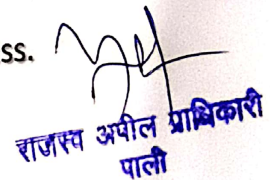 ss.
राजस्व अपील प्राधिकारी
पाली